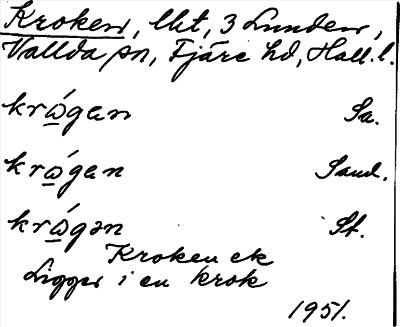 Kroken, lht, 3 Lunden,
Vallda sn, Fjäre hd, Hall. l.
krώ̲gan Sa.
krώ̲gan Sand.
krώ̲gən St.
Kroken ek
Ligger i en krok
1951.